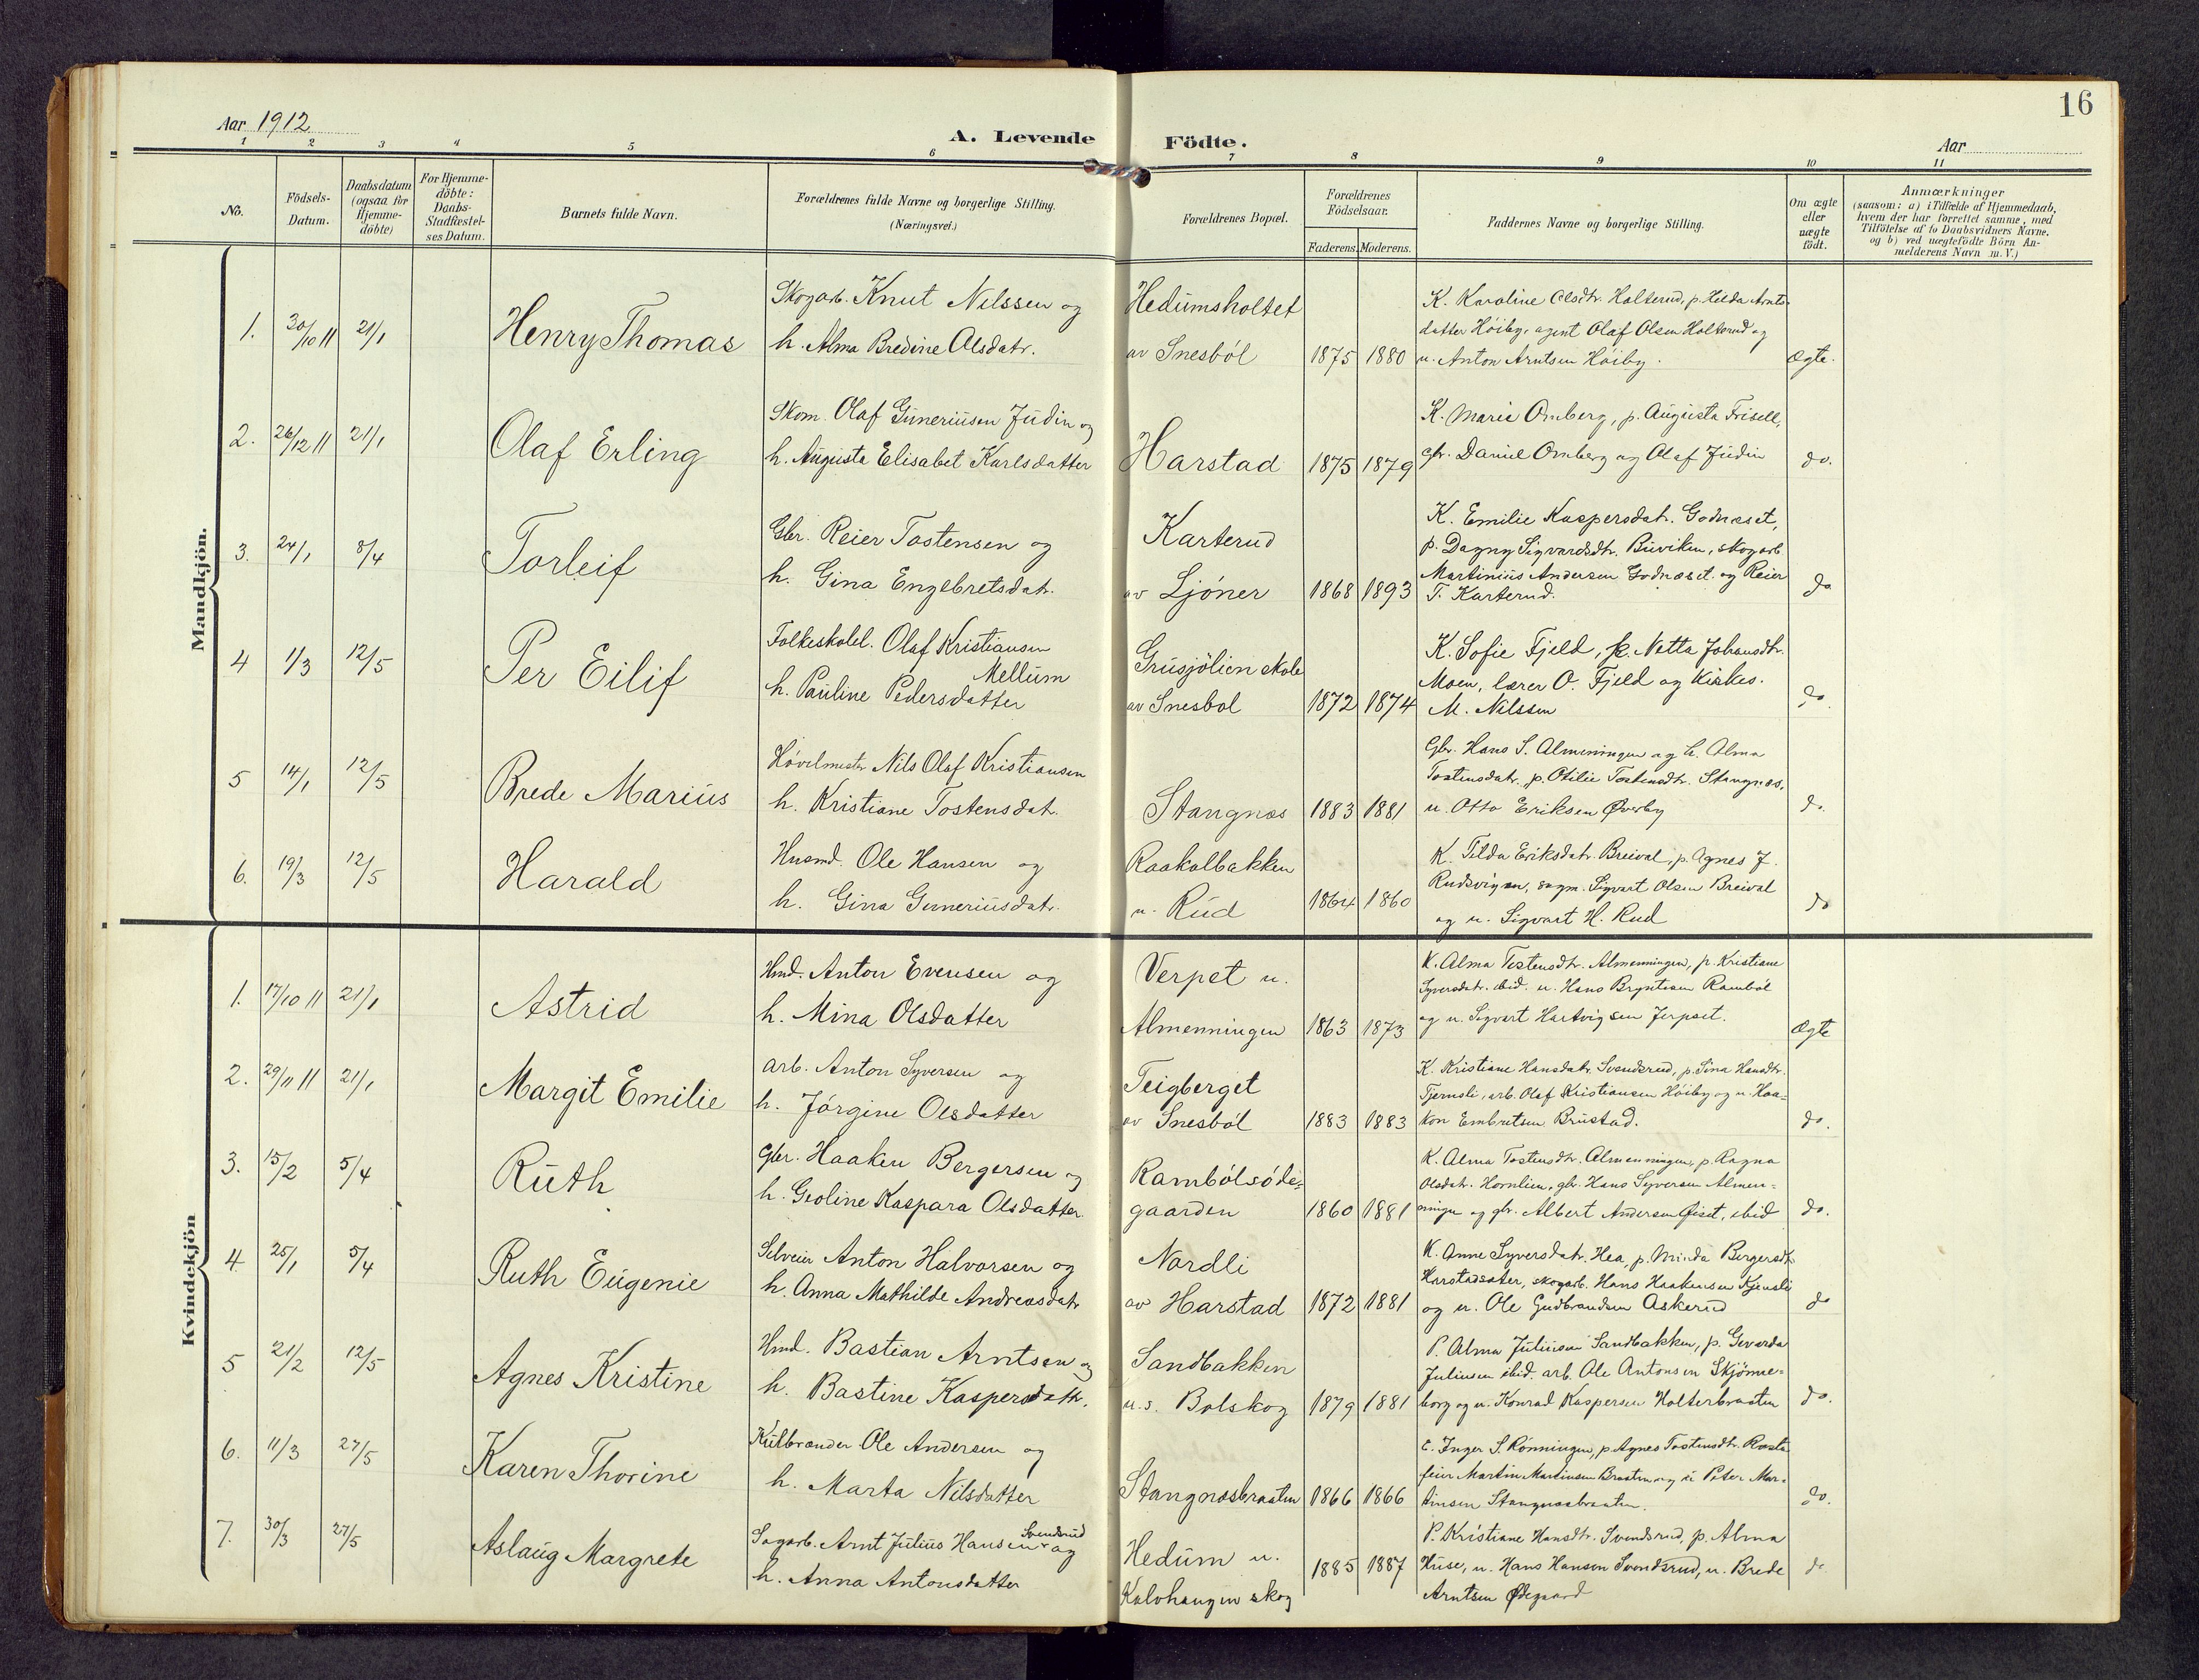 16
Aar 1912
A. Levende Födte.
Aar
1 2 3 4 5 6 7 8 9 10 11
No.
Födsels-
Datum.
Daabsdatum
(ogsaa for
Hjemme-
döbte)
For Hjemme-
döbte:
Daabs-
Stadfæstel-
ses Datum.
Barnets fulde Navn.
Forældrenes fulde Navne og borgerlige Stilling.
(Næringsvei.)
Forældrenes Bopæl.
Forældrenes
Födselsaar.
Faderens. Moderens.
Faddernes Navne og borgerlige Stilling.
Om ægte
eller
uægte
födt.
Anmærkninger
(saasom: a) i Tilfælde af Hjemmedaab,
hvem der har forrettet samme, med
Tilföielse af to Daabsvidners Navne,
og b) ved uægtefödte Börn An-
melderens Navn m. V.)
Mandkjön.
1. 30/10 11 21/1 Henry Thomas
Skogarb. Knut Nilssen og
h. Alma Bredine Olsdatr.
Hedumsholtet
av Snesból 1875 1880
K. Karoline Olsdtr. Holterud, p. Hilda Arnts-
datter Höiby, agent Olaf Olsen Holterud og
u. Anton Arntsen Höiby. Ægte.
2. 26/12 11 21/1 Olaf Erling
Skom. Olaf Guneriusen Judin og
h. Augusta Elisabet Karlsdatter
Harstad 1875 1879
K. Marie Omberg, p. Augusta Frisell,
gbr. Daniel Omberg og Olaf Judin do.
3. 24/1 8/4 Torleif
Gbr. Reier Tostensen og
h. Gina Engebretsdatr.
Karterud
av Ljóner 1868 1893
K. Emilie Kaspersdatr. Godnæset,
p. Dagny Sigvardsdtr. Buviken, skogarb
Martinius Andersen Godnæset og Reier
T. Karterud. do
4 1/3 12/5 Per Eilif
Folkeskolel. Olaf Kristiansen
Mellum
h. Pauline Pedersdatter
Grusjölien skole
av Snesbol 1872 1874
K. Sofie Fjeld, p. Netta Johansdtr.
Moen, lærer O. Fjeld og Kirkes.
M. Nilssen do.
5 14/1 12/5 Brede Marius
Hóvelmester Nils Olaf Kristiansen
h. Kristiane Tostensdatr.
Stangnæs 1883 1881
Gbr. Hans S. Almenningen og h. Alma
Tostensdatr. p. Otilie Tostensdtr. Stangnæs,
u. Otto Eriksen Øverby do.
6. 19/3 12/5 Harald
Husmd. Ole Hansen og
h. Gina Guneriusdatr.
Raakolbakken
u. Rud 1864 1860
K. Tilda Eriksdatr. Breival, p. Agnes J.
Rudsvigen, sagm. Sigvart Olsen Breival
og u. Sigvart H. Rud do
Kvindekjön
1. 17/10 11 21/1 Astrid
Hmd. Anton Evensen og
h. Mina Olsdatter
Verpet u.
Almenningen 1863 1873
K. Alma Tostensdtr. Almenningen, p. Kristiane
Syversdatr. ibid. u. Hans Ramból
og u. Sigvart Hartvigsen Jerpset. Ægte
2. 29/11 11 21/1 Margit Emilie
arb. Anton Syversen og
h. Jörgine Olsdatter
Teigberget
av Snesból 1883 1883
K. Kristiane Hansdatr. Svendsrud, p. Sina Hansdtr.
Tjernsli, arb. Olaf Kristiansen Höiby og u. Haa-
kon Embretsen Brustad. do.
3. 15/2 5/4 Ruth
Gbr. Haaken Bergersen og
h. Geoline Kaspara Olsdatter
Rambólsöde-
gaarden 1860 1881
K. Alma Tostensdtr. Almenningen, p. Ragna
Olsdatr. Hornlien, gbr. Hans Syversen Almen-
ningen og gbr. Albert Andersen Øiset, ibid do.
4 25/1 5/4 Ruth Eugenie
Selveier Anton Halvorsen og
h. Anna Mathilde Andreasdatr
Nordli
av Harstad 1872 1881
K. Anne Syversdatr. Hea, p. Minda Bergersdtr
Harstadsæter, skogarb. Hans Haakensen Kjensli
og u. Ole Gudbrandsen Askerud do
5 21/2 12/5 Agnes Kristine
Hmd. Bastian Arntsen og
h. Bastine Kaspersdatr.
Sandbakken
u. s. Bolskog 1879 1881
P. Alma Juliusen Sandbakken, p. Gevarda
Juliusen ibid. arb. Ole Antonsen Skjönne-
borg og u. Konrad Kaspersen Holterbraaten do.
6. 11/3 27/5 Karen Thorine
Kulbrænder Ole Andersen og
h. Marta Nilsdatter
Stangnæsbraaten 1866 1866
E. Inger S. Rónningen, p. Agnes Tostensdtr.
feier Martin Martinsen Braaten og u. Peter Mar-
tinsen Stangnæsbraaten. do.
7. 30/3 27/5 Aslaug Margrete
Svendsrud
Sagarb. Arnt Julius Hansen og
h. Anna Antonsdatter
Hedum u.
Kalvhaugen skog 1885 1887
P. Kristiane Hansdtr. Svendsrud, p. Alma
Huse, u. Hans Hansen Svendsrud, u. Brede
Arntsen Ødegaard do